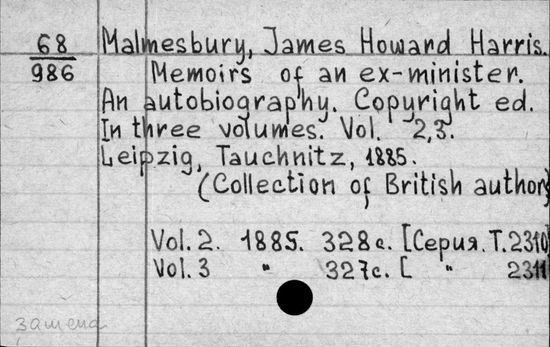 68
986
Malmesbury, James Howard Harris.
Memoirs of an ex-minister.
An autobiography. Copyright ed.
In three volumes. Vol. 2,3.
Leipzig, Tauchnitz, 1885.
(Collection of British authors
Vol. 2. 1885. 328 с. [Серия. Т. 2310]
Vol. 3 " 327 с. [ " 2311]
замена